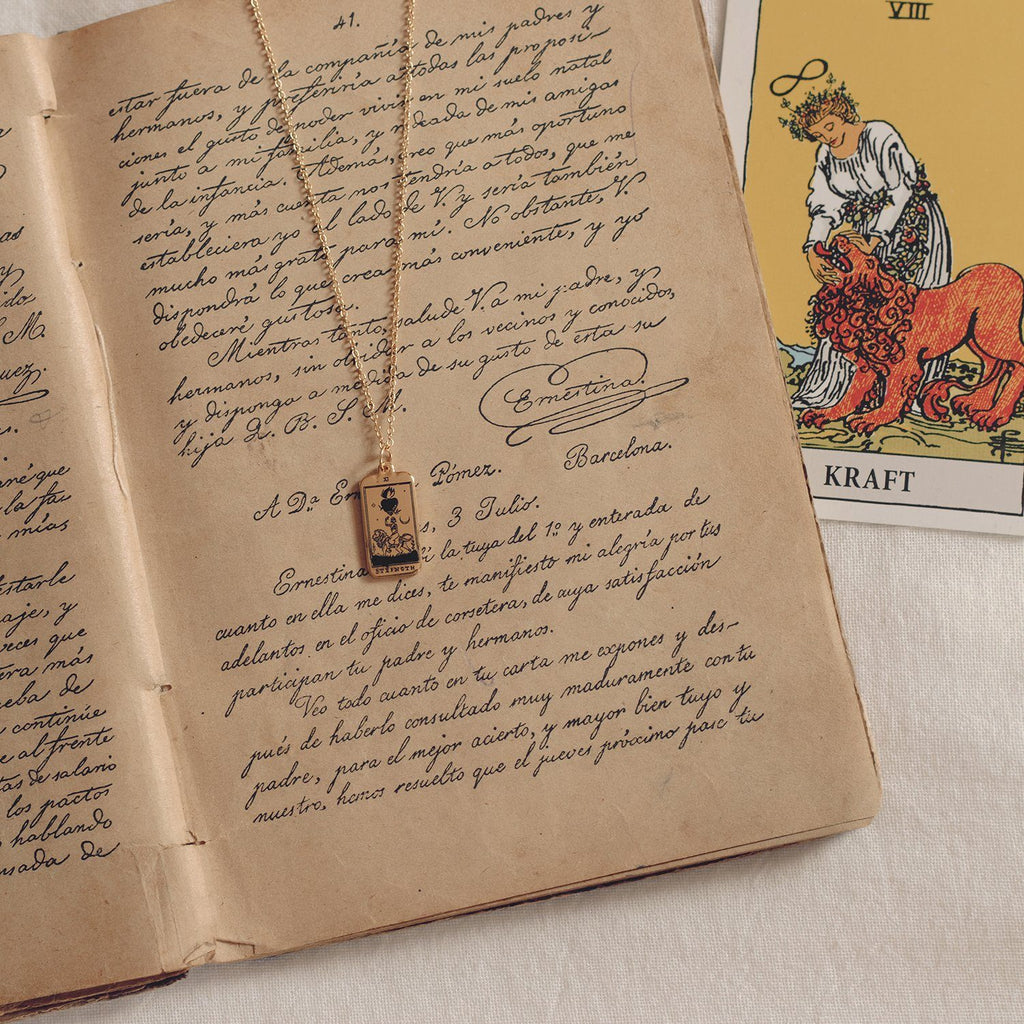 41.
estar fuera de la compañía de mis padres y
hermanos, y preferiría a todas las proposi-
ciones el gusto de poder vivir en mi suelo natal
junto a mi familia, y rodeada de mis amigas
de la infancia. Además, creo que más oportuno
sería, y más cuenta nos tendría a todos, que me
estableciera yo al lado de V. y sería también
mucho más grato para mí. No obstante, V.
dispondrá lo que crea más conveniente, y yo
obedeceré gustosa.
Mientras tanto, salude V. a mi padre, y
hermanos, sin olvidar a los vecinos y conocidos,
y disponga a medida de su gusto de esta su
hija Q. B. S. M.
Ernestina.
A Dª Pómez. Barcelona.
s, 3 Julio.
Ernestina la tuya del 1º y enterada de
cuanto en ella me dices, te manifiesto mi alegría por tus
adelantos en el oficio de corsetera, de cuya satisfacción
participan tu padre y hermanos.
Veo todo cuanto en tu carta me expones y des-
pués de haberlo consultado muy maduramente con tu
padre, para el mejor acierto, y mayor bien tuyo y
nuestro, hemos resuelto que el jueves próximo pase tu
as
y
ido
S. M.
uez.
s.
né que
la fa-
mías
starle
aje, y
veces que
era más
eba de
continúe
e al frente
tas de salario
los pactos
hablando
usada de
XI
STRENGTH
VIII
KRAFT